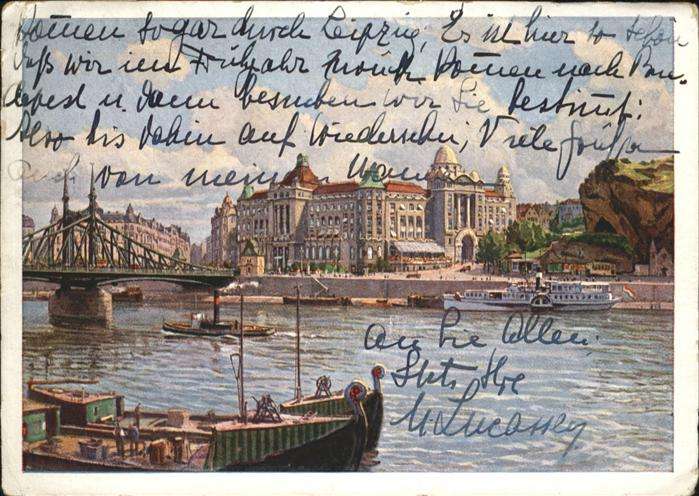 kommen sogar durch Leipzig. Es ist hier so schön
daß wir im Frühjahr zurück kommen nach Bu-
dapest u. dann besuchen wir Sie bestimt!
Also bis dahin auf Wiedersehen, Viele Grüße
auch von meinem Mann
an Sie Allen.
Stets Ihre
M Lucassey